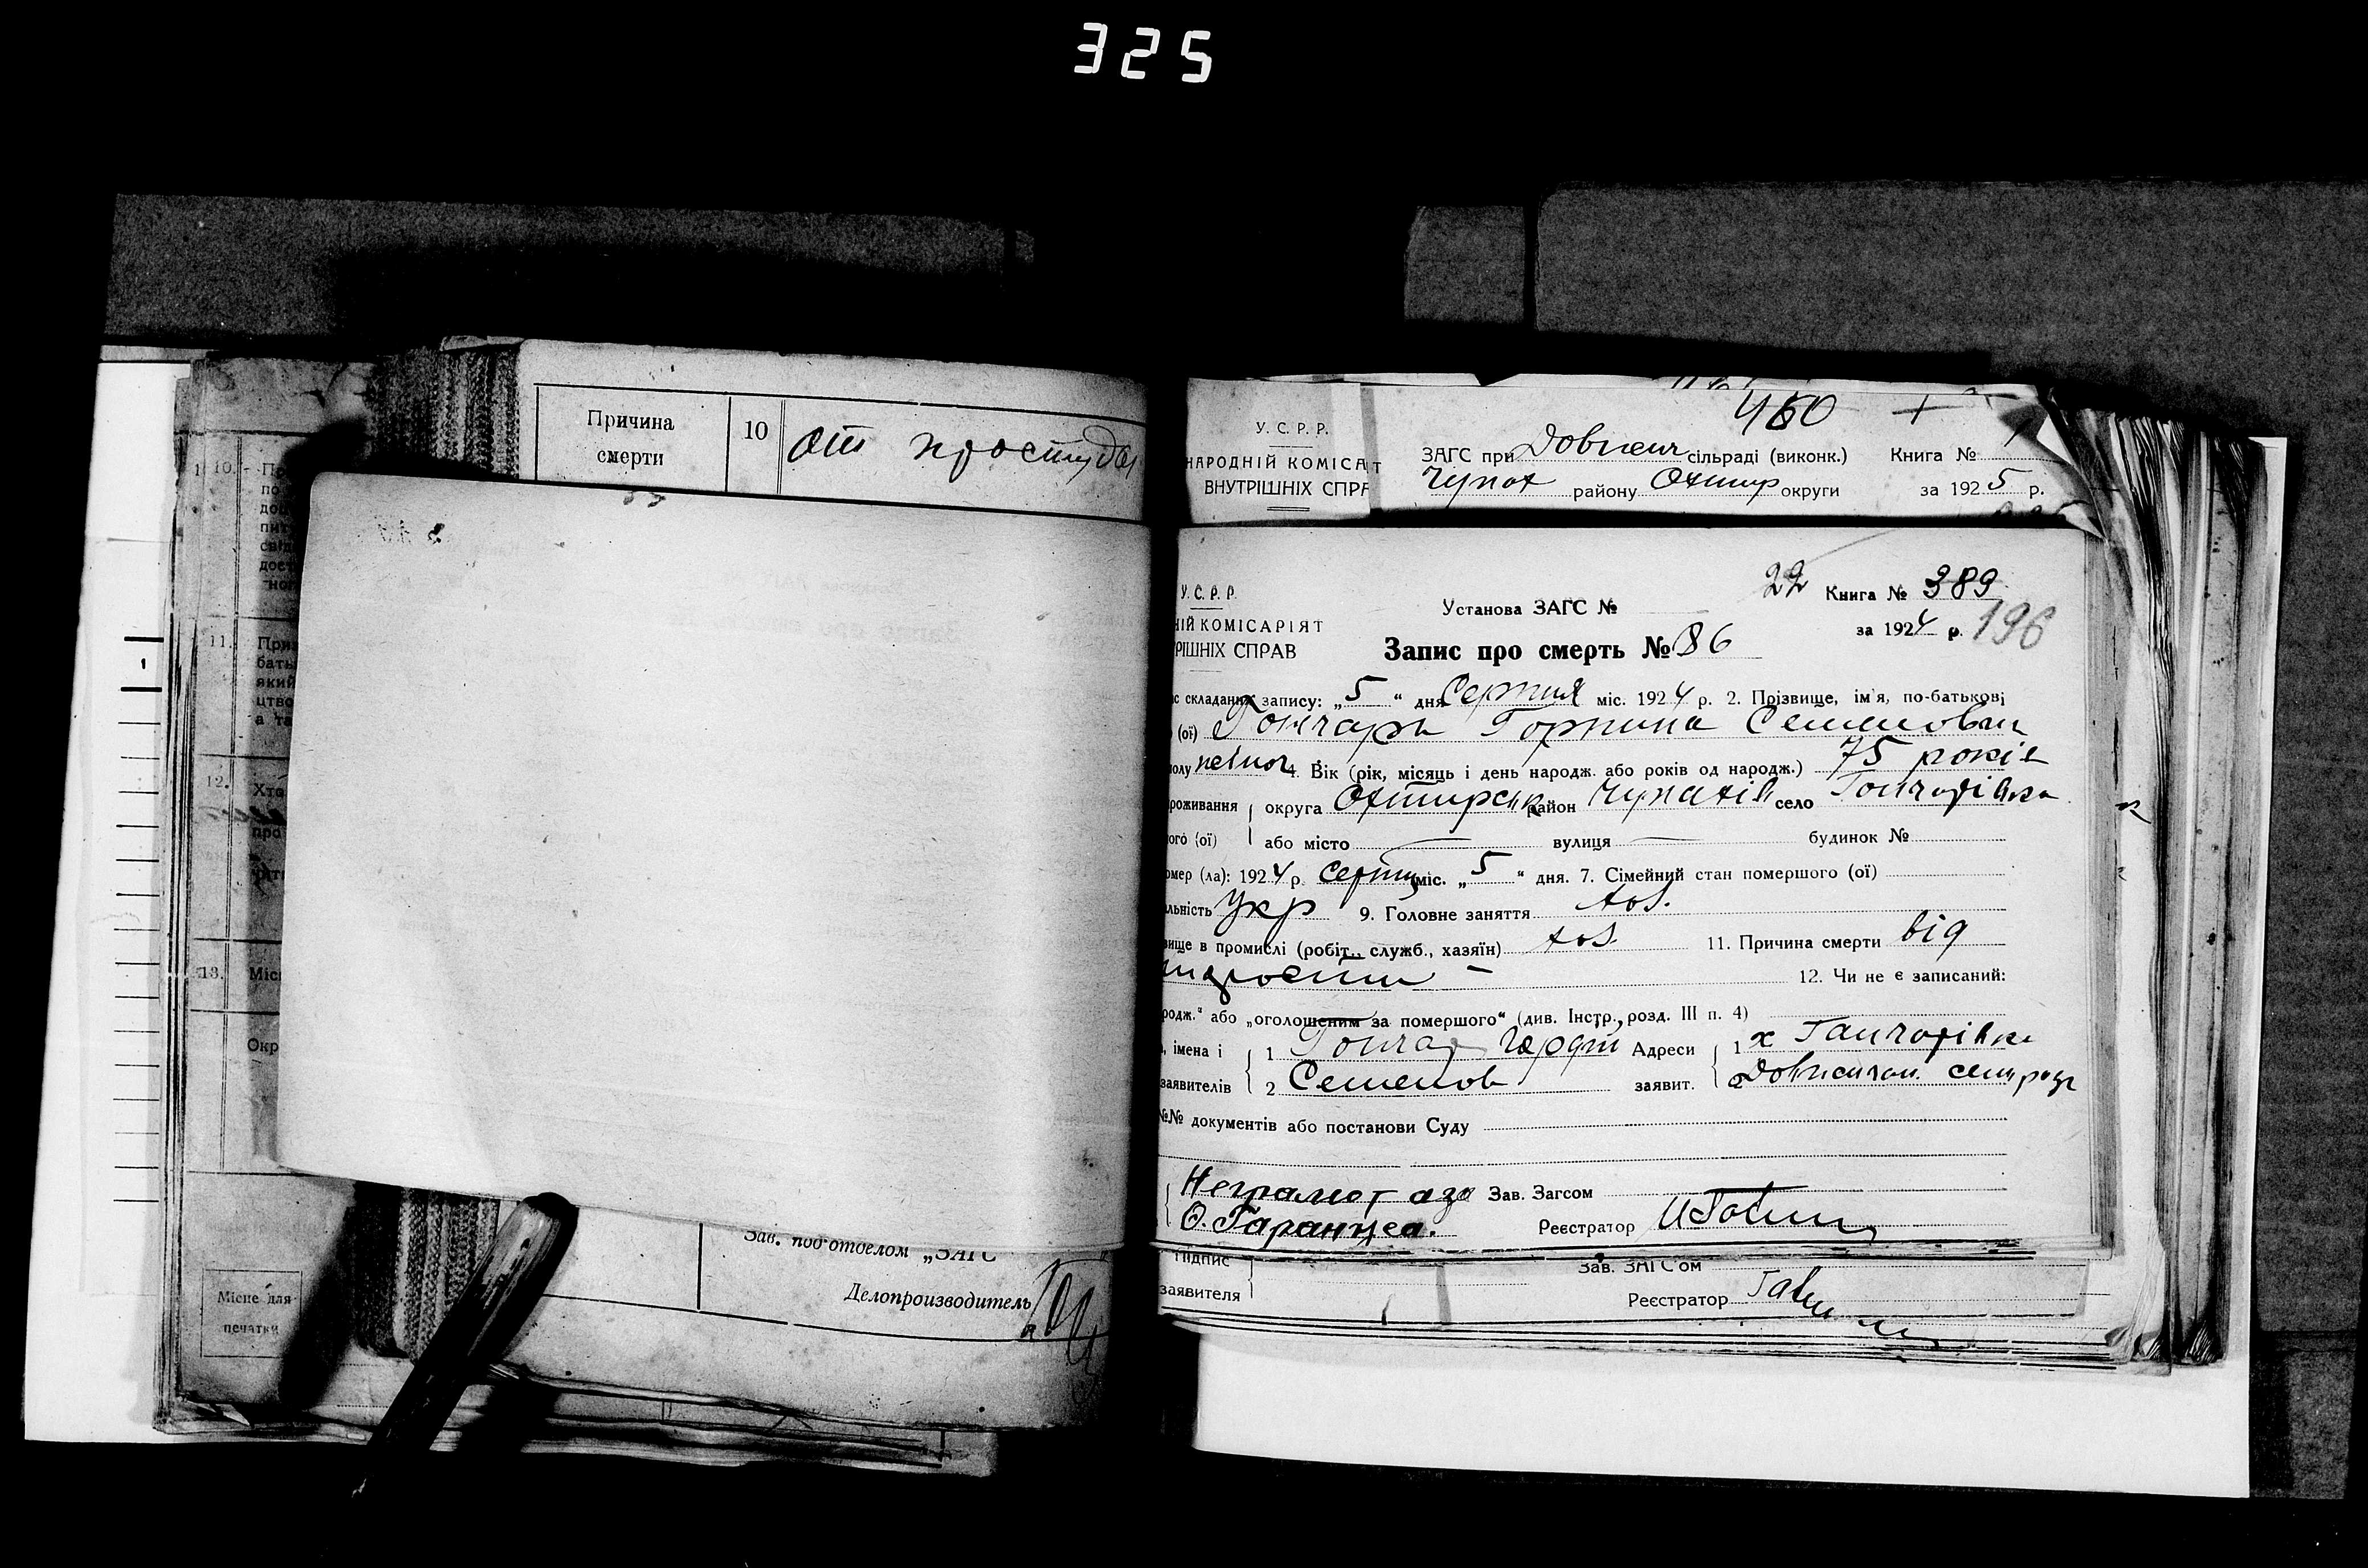 325
Причина смерти
10
от простуды
10.
11.
12.
13.
Зав. под'отделом „ЗАГС
Делопроизводитель
Місце для
печатки
У. С. Р. Р.
НАРОДНІЙ КОМІСАТ
ВНУТРІШНІХ СПР
460 +
ЗАГС при сільраді (виконк.) Книга № 1
Чупах району Охтир округи за 1925 р.
У. С. Р. Р.
ІЙ КОМІСАРІЯТ
РІШНІХ СПРАВ
22 Книга № 389
Установа ЗАГС №
за 1924 р. 196
Запис про смерть № 86
с складання запису: „5“ дня Серпня міс. 1924 р. 2. Прізвище, ім'я, по-батькові
(ої) Гончарь Горпина Семеновна
олу 4. Вік (рік, місяць і день народж. або років од народж.) 75 років
роживання округа Охтирськ район Чупахів село Гончарівка
ого (ої) або місто вулиця будинок №
омер (ла): 1924 р. Серпня міс. „5“ дня. 7. Сімейний стан помершого (ої)
льність Укр 9. Головне заняття хоз.
вище в промислі (робіт., служб., хазяїн) хоз 11. Причина смерти від
12. Чи не є записаний:
родж.“ або „оголошеним за помершого“ (див. Інстр., розд. III п. 4)
, імена і 1 Гончар Адреси 1 х Гончарівка
заявителів 2 Семенов заявит. 2
№№ документів або постанови Суду
Неграмот Зав. Загсом
О. Гаранжеа. Реєстратор
Підпис Зав. ЗАГС'ом
заявителя Реєстратор